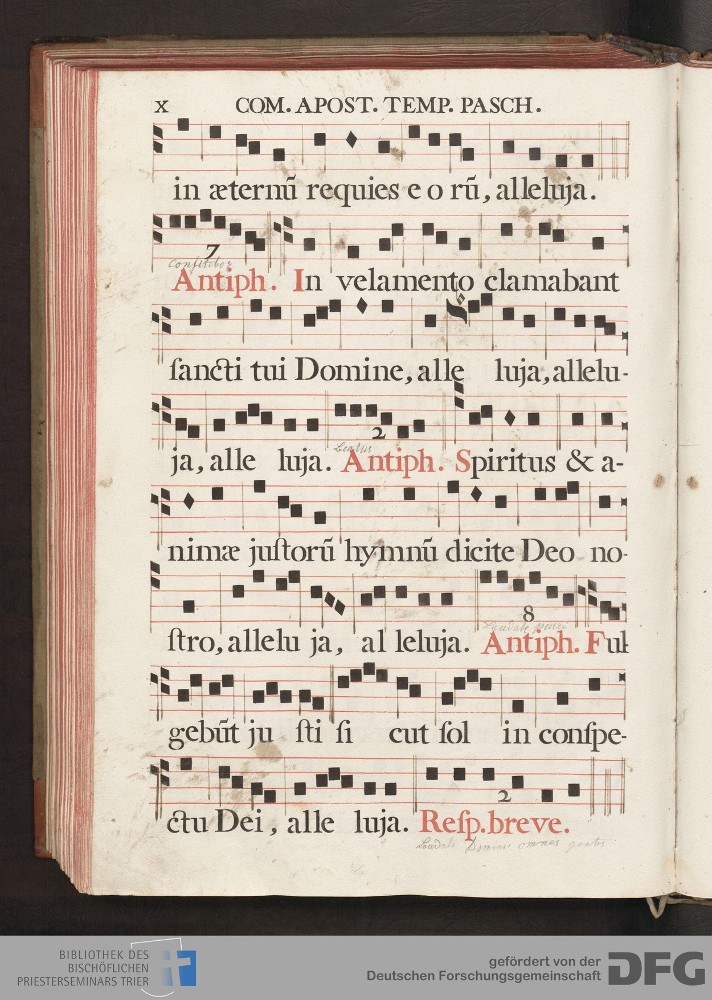 x COM. APOST. TEMP. PASCH.
in æternũ requies e o rũ, alleluja.
7
Confitebor
Antiph. In velamento clamabant
ſancti tui Domine, alle luja, allelu-
2
ja, alle luja. Antiph. Spiritus & a-
nimæ juſtorũ hymnũ dicite Deo no-
8
ſtro, allelu ja, al leluja. Antiph. Ful
gebũt ju ſti ſi cut ſol in conſpe-
2
ctu Dei, alle luja. Reſp. breve.
Laudate Dominum omnes gentes
BIBLIOTHEK DES
BISCHÖFLICHEN
PRIESTERSEMINARS TRIER
gefördert von der
Deutschen Forschungsgemeinschaft DFG